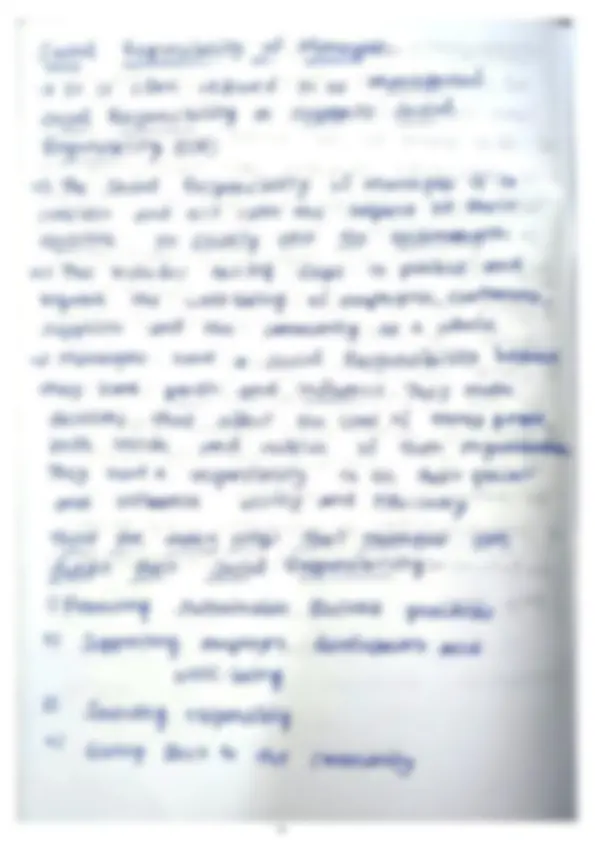 Social Responsibility of Manager
It is often referred to as managerial
Social Responsibility or corporate Social
Responsibility (CSR)
The Social Responsibility of manager is to
consider and act upon the impact of their
on society and the
This includes taking steps to protect and
improve the well-being of employees, customers,
suppliers and the community as a whole
Managers have a social Responsibility because
they have power and influence. They make
decisions that affect the lives of many people
both inside and outside of their organization
They have a responsibility to use their power
and influence wisely and ethically
There are many ways that managers can
fulfill their Social Responsibility
1) Promoting Sustainable Business practices
2) Supporting employee development and
well-being
3) responsibly
4) Giving Back to the community